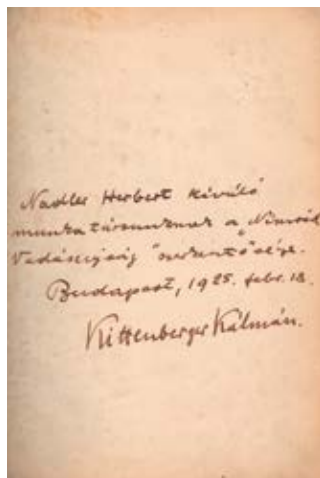 Nadler Herbert kiváló
munkatársunknak a „Nimród
Vadászujság" szerkesztősége.
Budapest, 1925. febr. 18.
Kittenberger Kálmán.